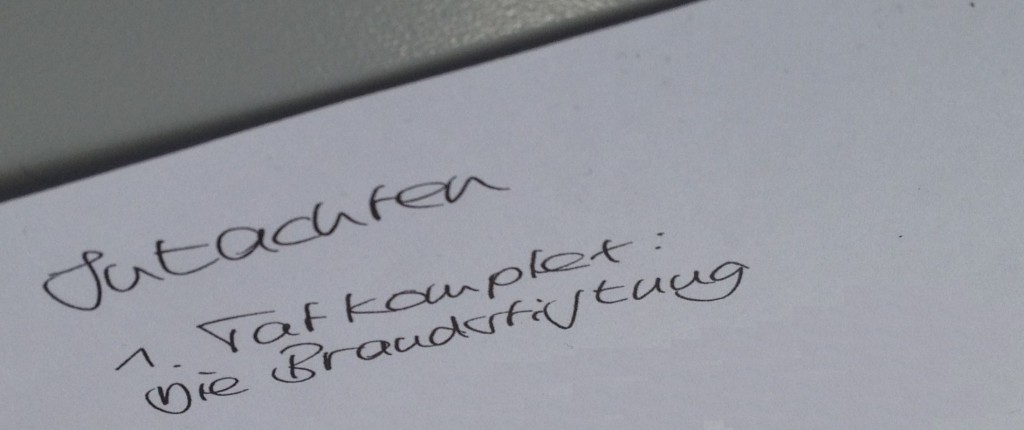 Gutachten
1. Tatkomplex:
Die Brandstiftung